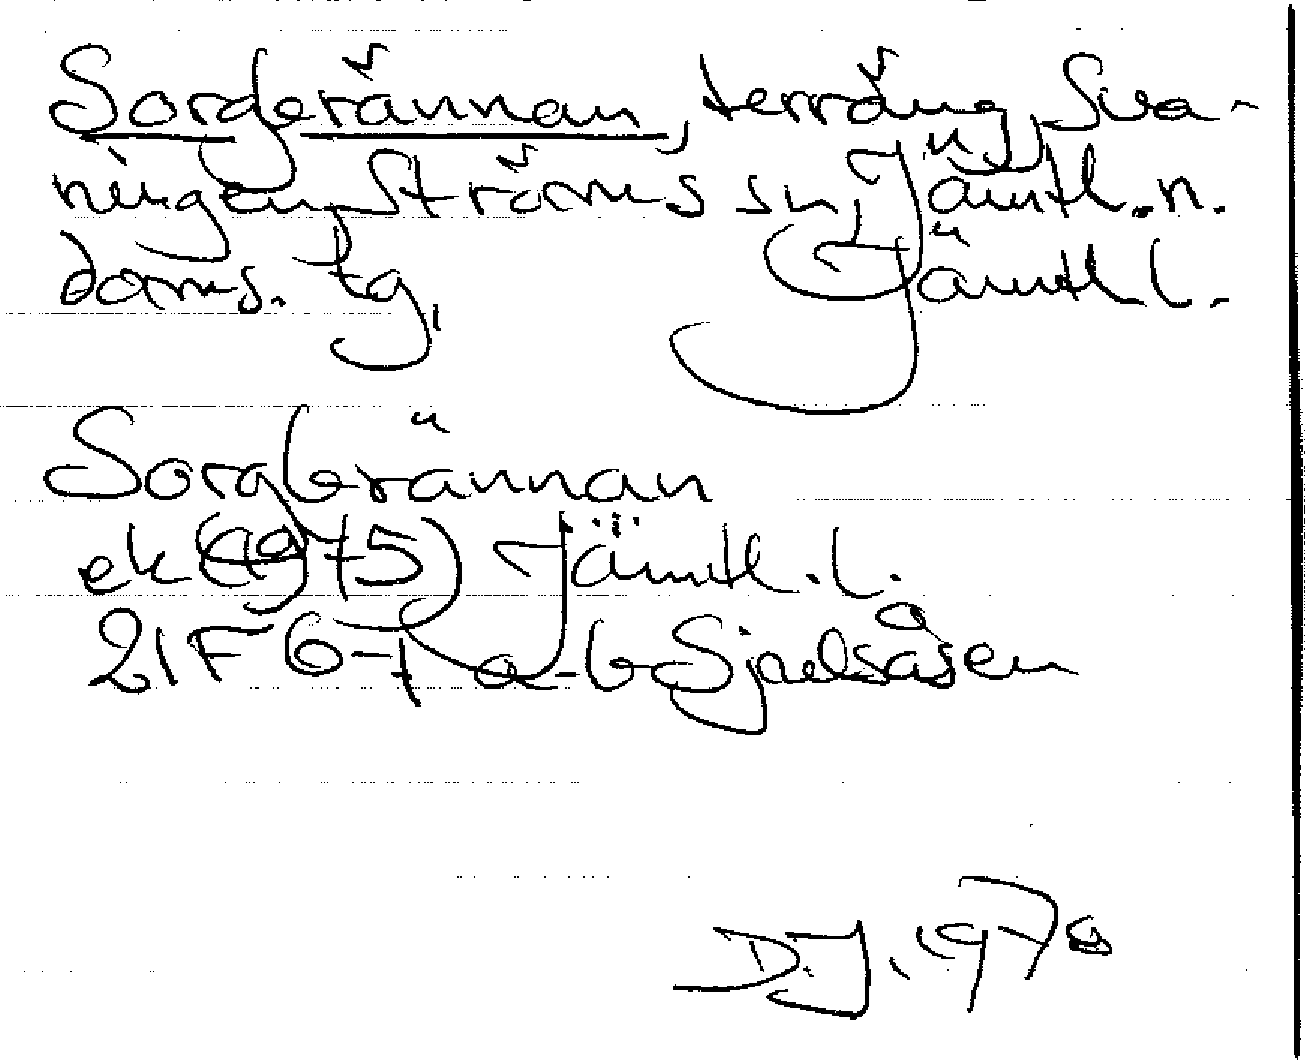 Sorgbrännan, terräng, Sva-
ningen, Ströms sn, Jämtl. n.
doms. tg, Jämtl. l.
Sorgbrännan
ek (1975) Jämtl. l.
21F 6-7 a-b Sjoelsåsen
D.J. 1978